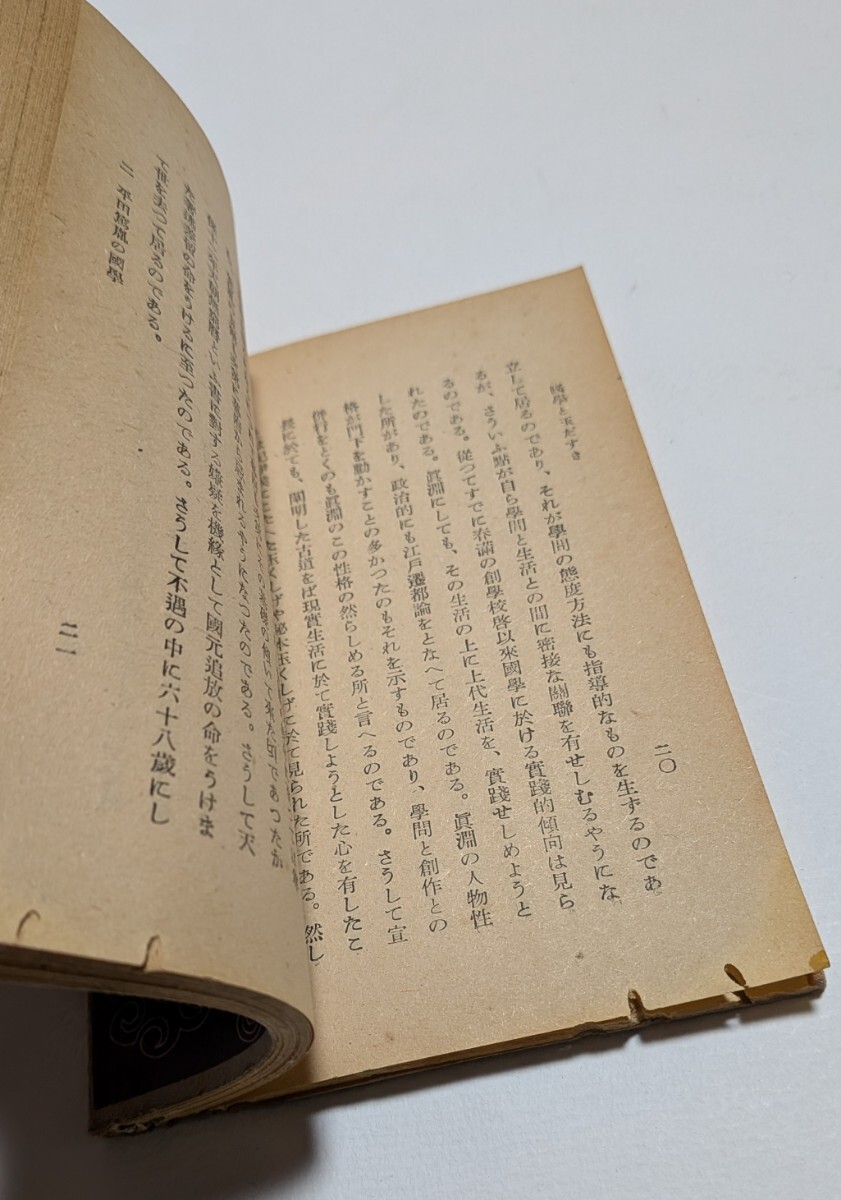 二〇
國學と玉だすき
立して居るのであり、それが學問の態度方法にも指導的なものを生ずるのであ
るが、さういふ點が自ら學問と生活との間に密接な關聯を有せしむるやうにな
るのである。從つてすでに春滿の創學校啓以來國學に於ける實踐的傾向は見ら
れたのである。眞淵にしても、その生活の上に上代生活を、實踐せしめようと
した所があり、政治的にも江戸遷都論をとなへて居るのである。眞淵の人物性
格が門下を動かすことの多かつたのもそれを示すものであり、學問と創作との
併行をとくのも眞淵のこの性格の然らしめる所と言へるのである。さうして宣
長に於ても、闡明した古道をば現實生活に於て實踐しようとした心を有したこ
玉くしげや秘本玉くしげに於て見られた所である。然し
されるやうになつたのである。さうして天
といふ書に對する嫌疑を機緣として國元追放の命をうけま
の命をうけるに至つたのである。さうして不遇の中に六十八歲にし
て世を去つて居るのである。
二 平田篤胤の國學
二一